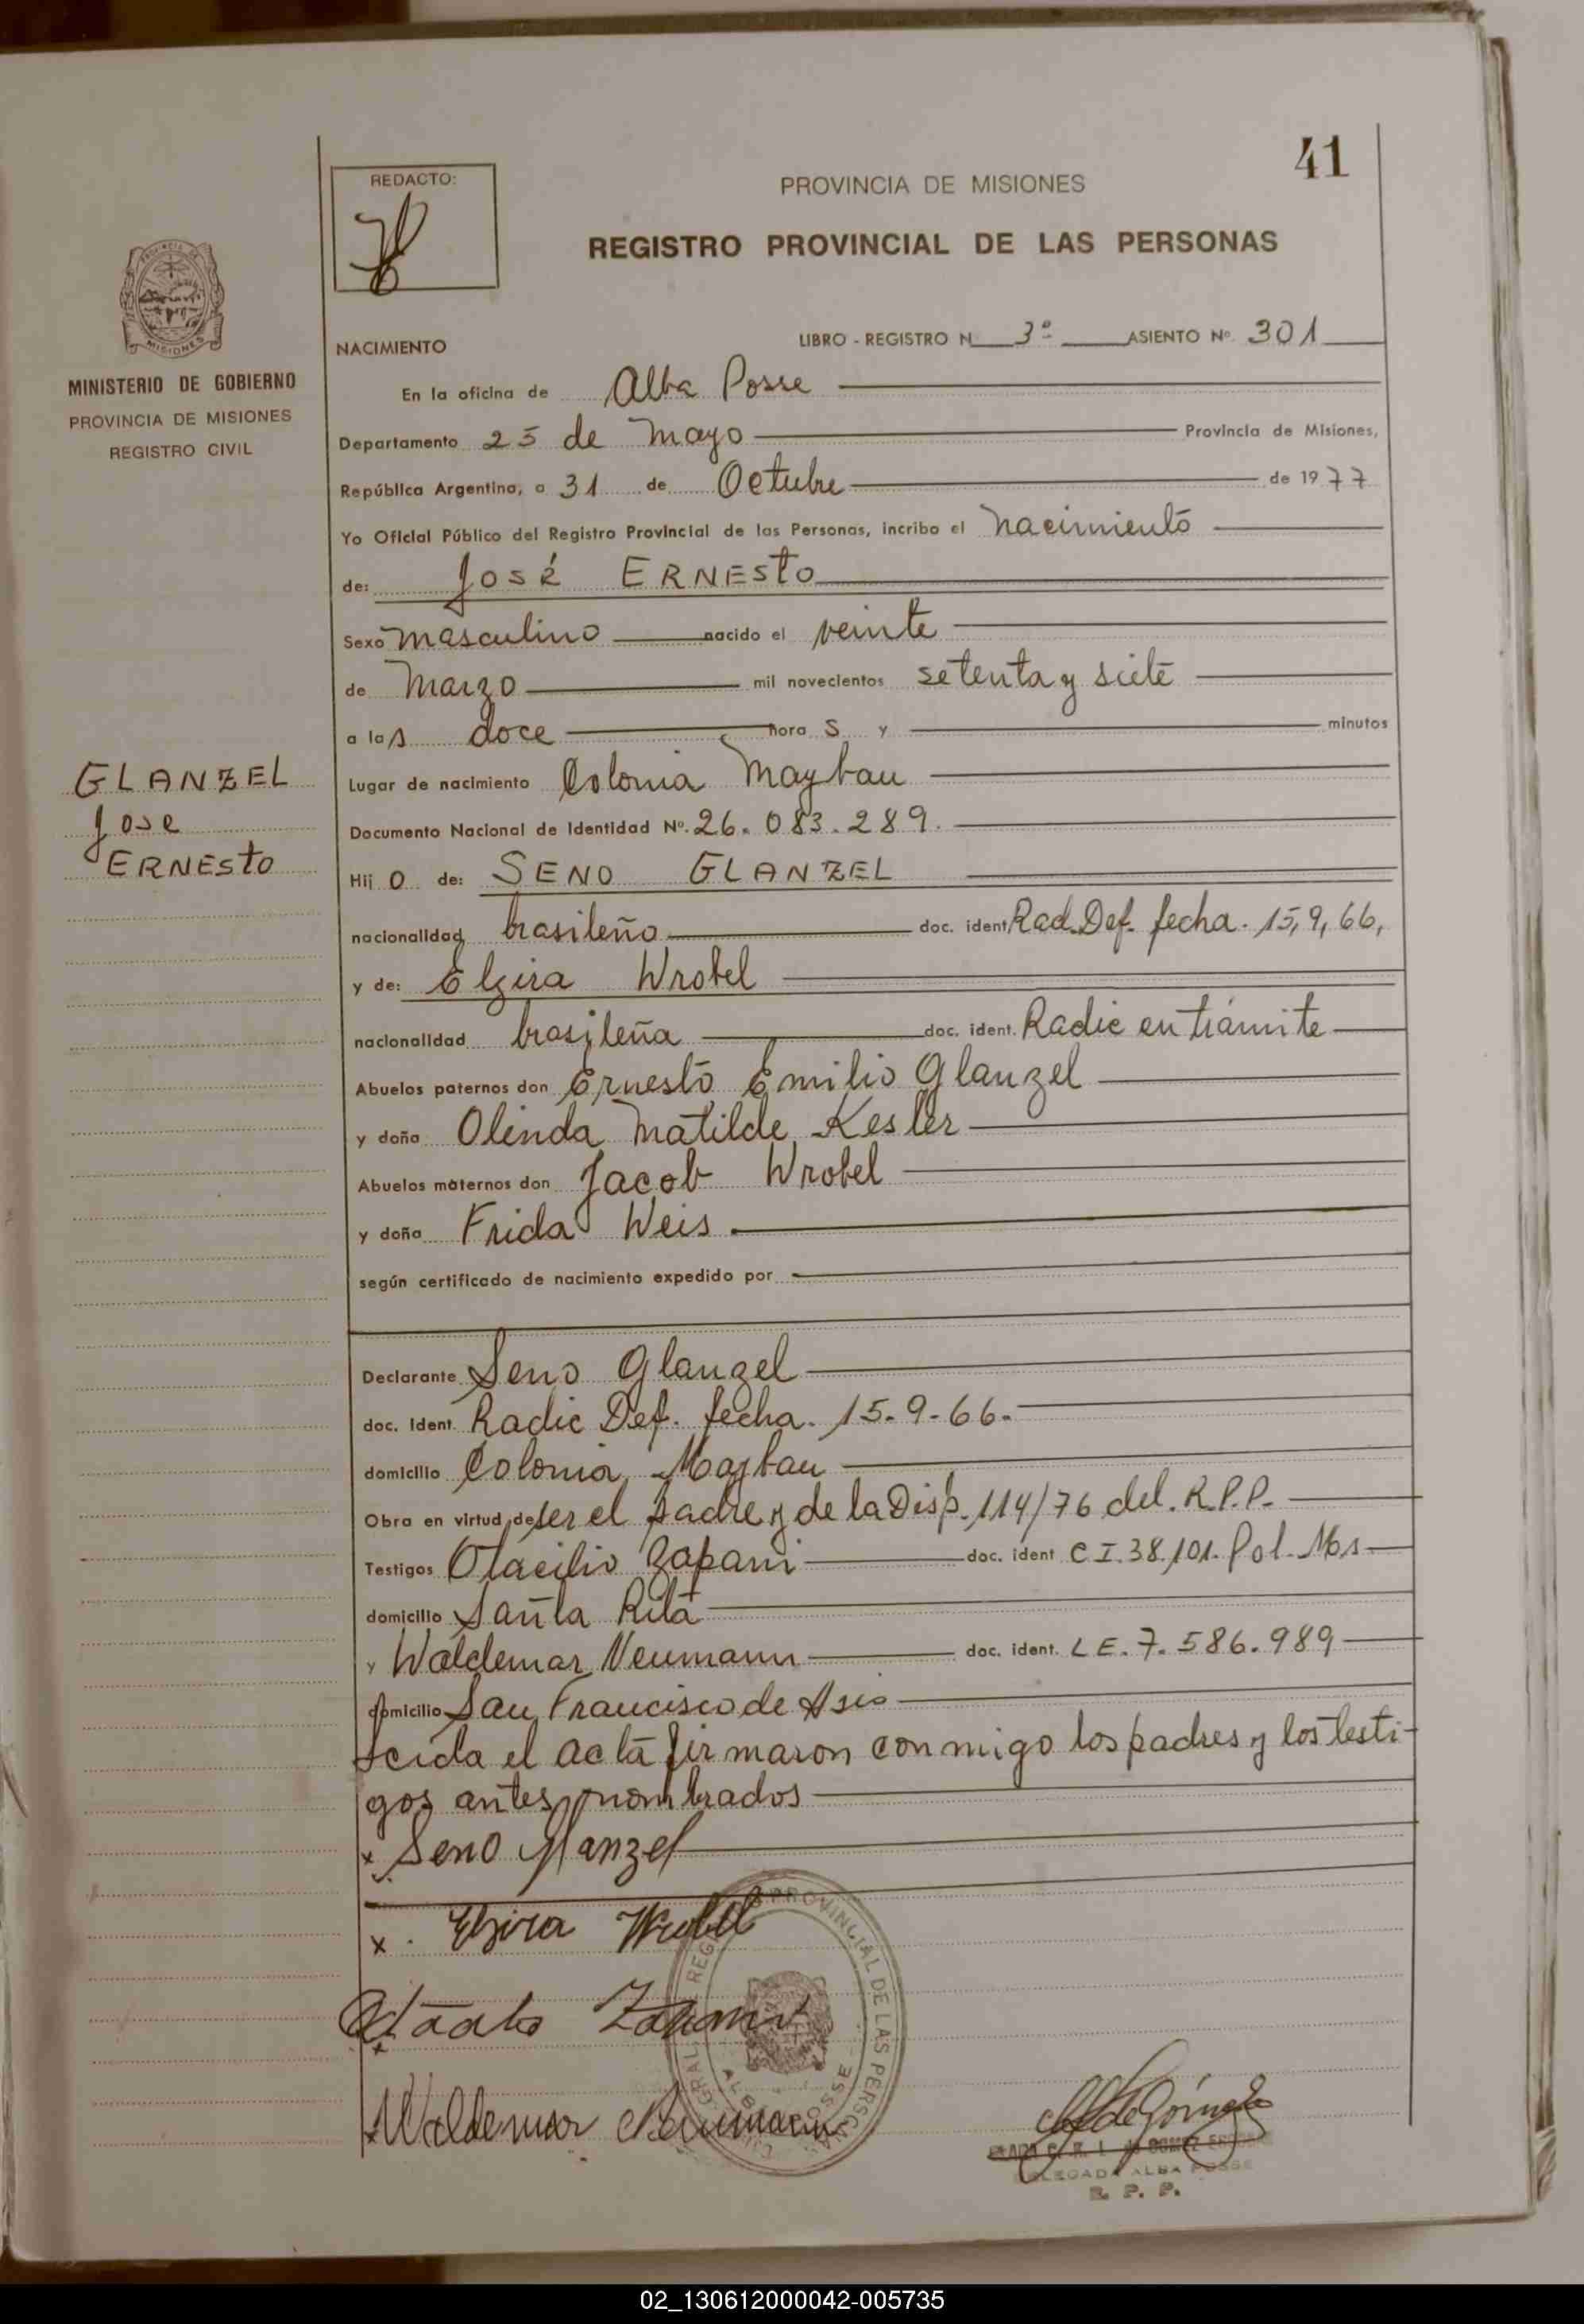 41
REDACTO:
PROVINCIA DE MISIONES
REGISTRO PROVINCIAL DE LAS PERSONAS
MISIONES
MINISTERIO DE GOBIERNO
PROVINCIA DE MISIONES
REGISTRO CIVIL
NACIMIENTO
LIBRO - REGISTRO N 3º ASIENTO Nº 301
En la oficina de Alba Posse
Departamento 25 de Mayo Provincia de Misiones,
República Argentina, a 31 de Octubre de 1977
Yo Oficial Público del Registro Provincial de las Personas, incribo el nacimiento
de: José ERNESTO
Sexo masculino nacido el veinte
de Marzo mil novecientos setenta y siete
a las doce hora s y minutos
GLANZEL
Jose
ERNESTO
Lugar de nacimiento Colonia Maybau
Documento Nacional de Identidad Nº. 26.083.289.
Hij o de: SENO GLANZEL
nacionalidad brasileño doc. ident Rad. Def. fecha. 15,9,66,
y de: Elzira Wrobel
nacionalidad brasileña doc. ident. Radic en trámite
Abuelos paternos don Ernesto Emilio Glanzel
y doña Olinda Matilde Kesler
Abuelos maternos don Jacob Wrobel
y doña Frida Weis
según certificado de nacimiento expedido por
Declarante Seno Glanzel
doc. Ident. Radic Def. fecha. 15-9-66-
domicilio Colonia Maybau
Obra en virtud de ser el padre y de la Disp. 114/76 del. R.P.P.
Testigos Otacilio Zapani doc. ident C I. 38.101. Pol. Mos
domicilio Santa Rita
y Waldemar Neumann doc. ident. LE. 7.586.989
domicilio San Francisco de Asis
Leida el acta firmaron conmigo los padres y los testi-
gos antes nombrados
x Seno Glanzel
x. Elzira Wrobel
x Waldemar Neumann
DELEGADA ALBA POSSE
R. P. P.
02_130612000042-005735